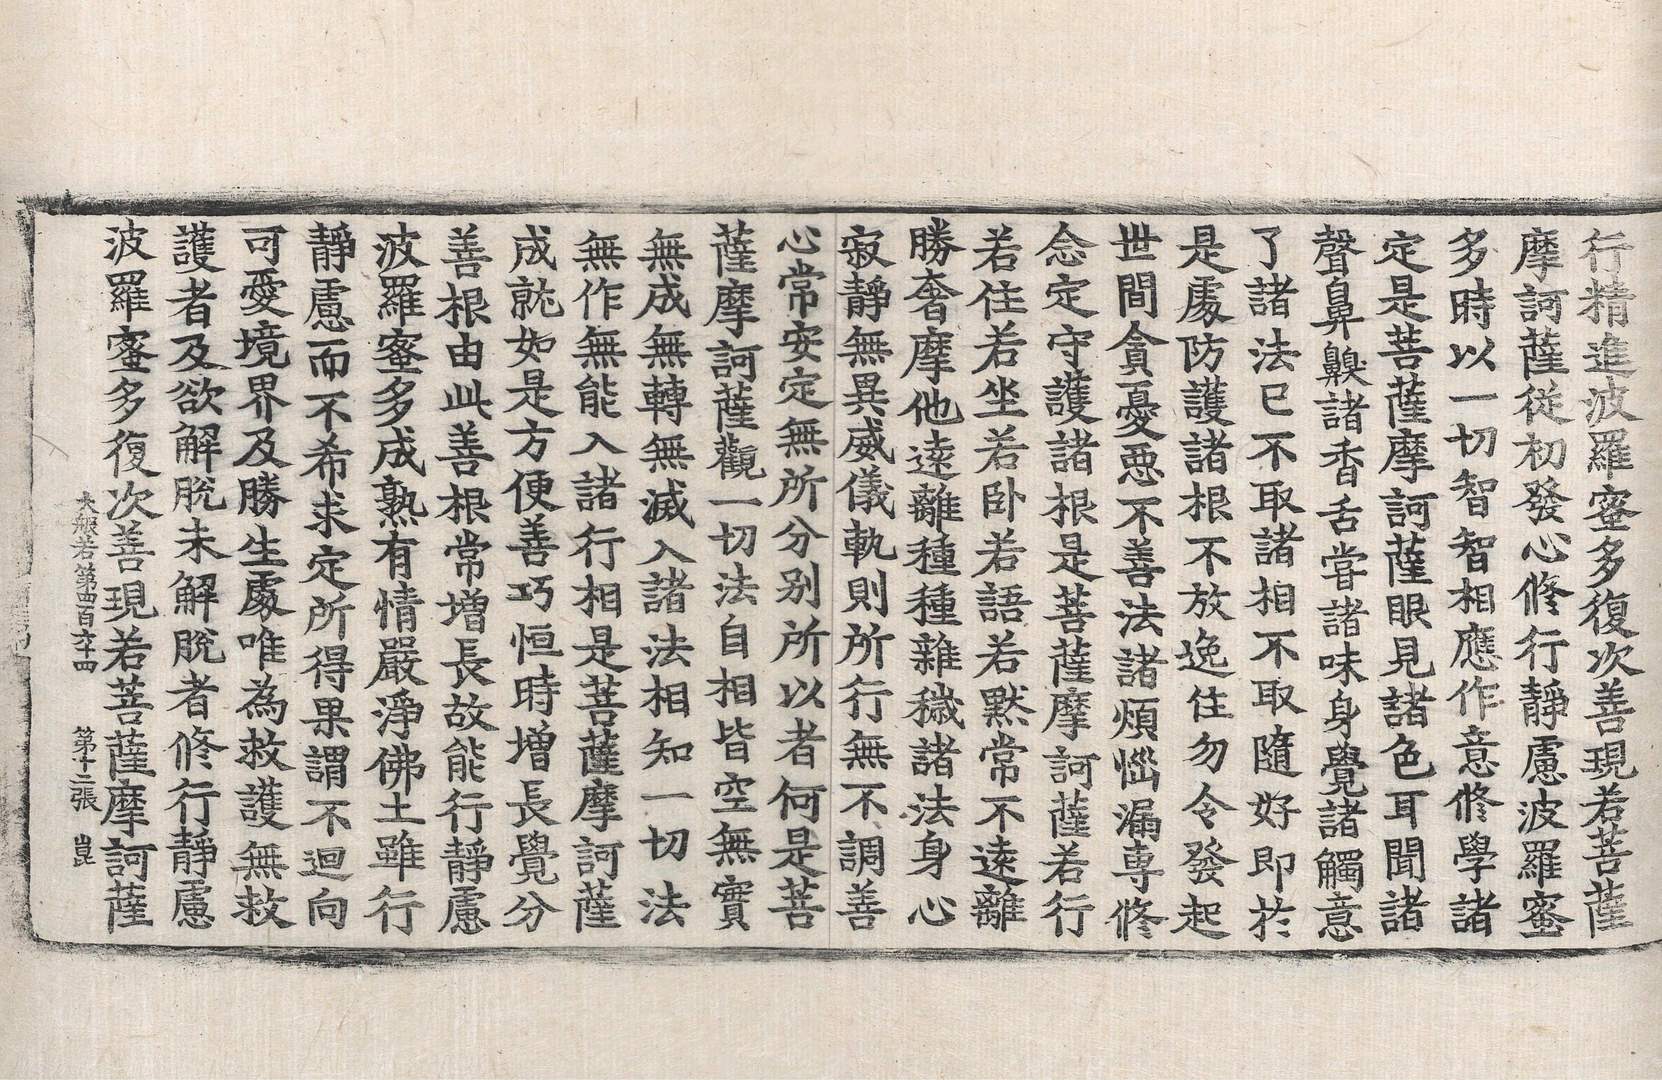 行精進波羅蜜多復次善現若菩薩
摩訶薩從初發心修行靜慮波羅蜜
多時以一切智智相應作意修學諸
定是菩薩摩訶薩眼見諸色耳聞諸
聲鼻齅諸香舌嘗諸味身覺諸觸意
了諸法已不取諸相不取隨好即於
是處防護諸根不放逸住勿令發起
世間貪憂惡不善法諸煩惱漏專修
念定守護諸根是菩薩摩訶薩若行
若住若坐若卧若語若默常不遠離
勝奢摩他遠離種種雜穢諸法身心
寂靜無異威儀軌則所行無不調善
心常安定無所分別所以者何是菩
薩摩訶薩觀一切法自相皆空無實
無成無轉無滅入諸法相知一切法
無作無能入諸行相是菩薩摩訶薩
成就如是方便善巧恒時增長覺分
善根由此善根常增長故能行靜慮
波羅蜜多成熟有情嚴淨佛土雖行
靜慮而不希求定所得果謂不迴向
可愛境界及勝生處唯為救護無救
護者及欲解脫未解脫者修行靜慮
波羅蜜多復次善現若菩薩摩訶薩
大般若第四百六十四 第十二張 崑